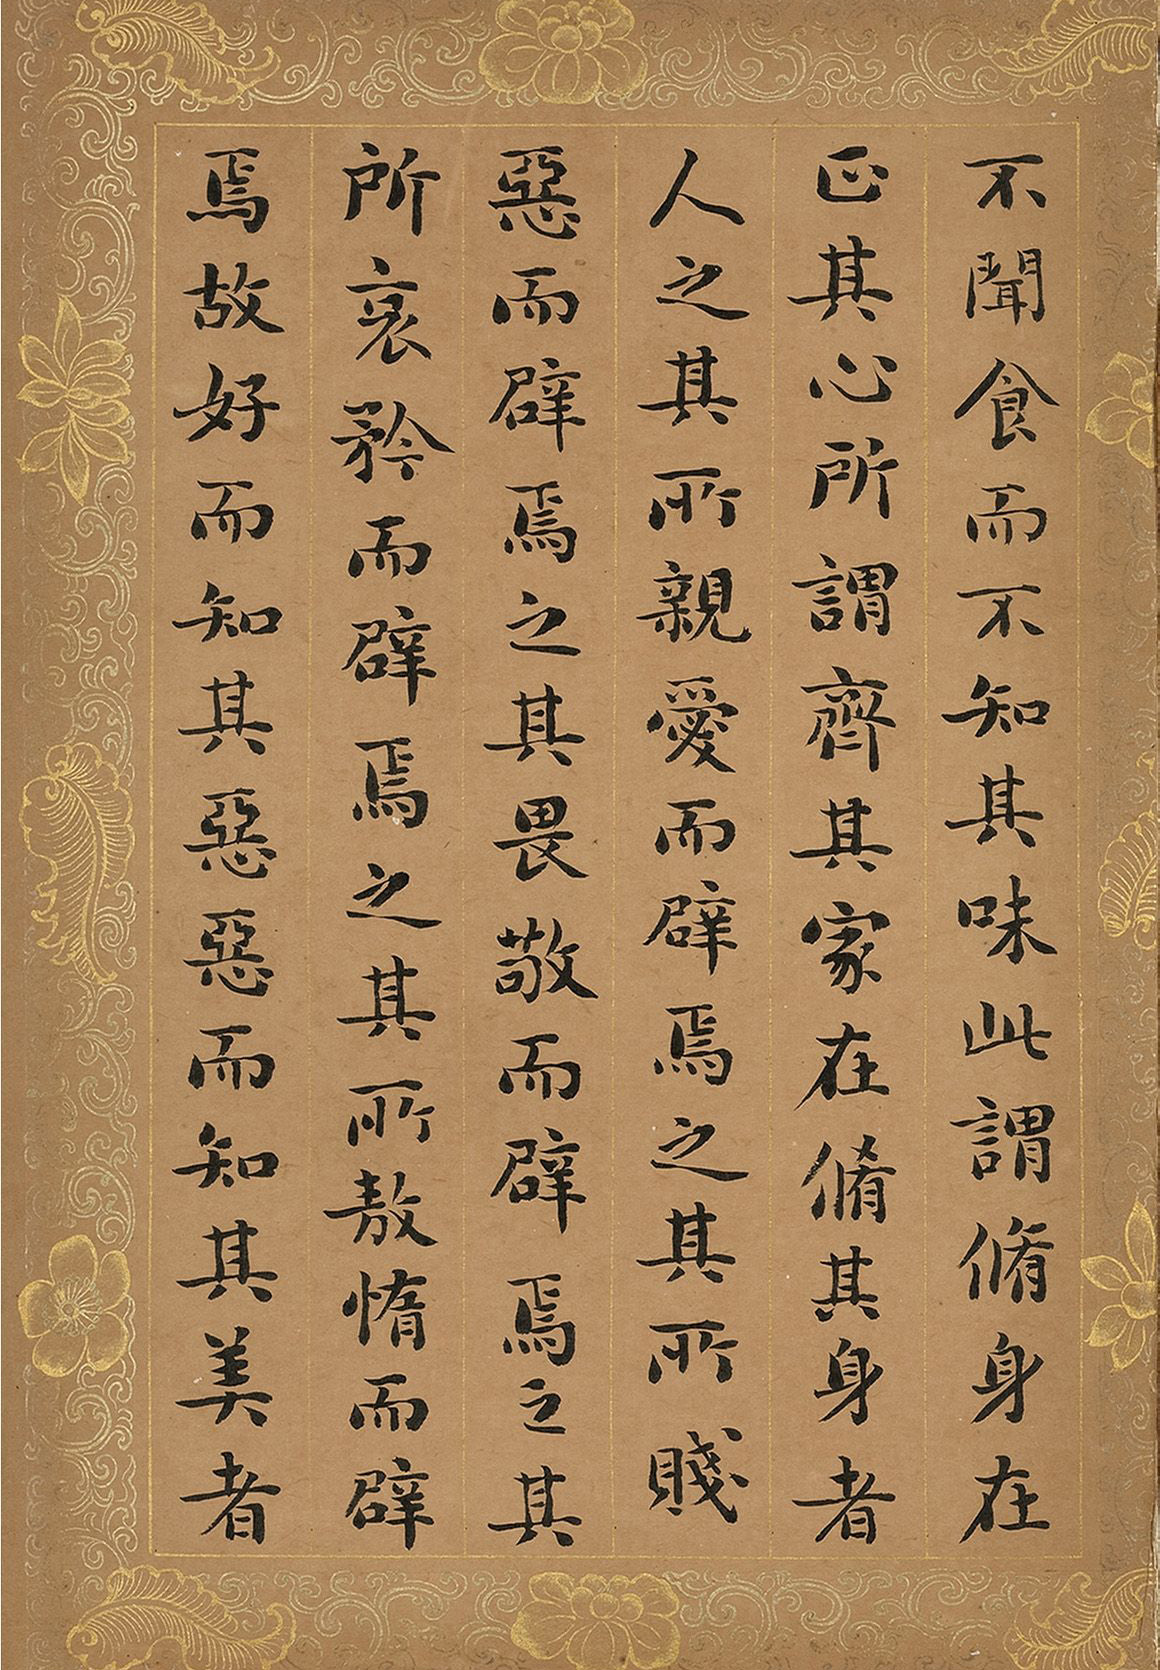 不聞食而不知其味此謂脩身在
正其心所謂齊其家在脩其身者
人之其所親愛而辟焉之其所賤
惡而辟焉之其畏敬而辟焉之其
所哀矜而辟焉之其所敖惰而辟
焉故好而知其惡惡而知其美者